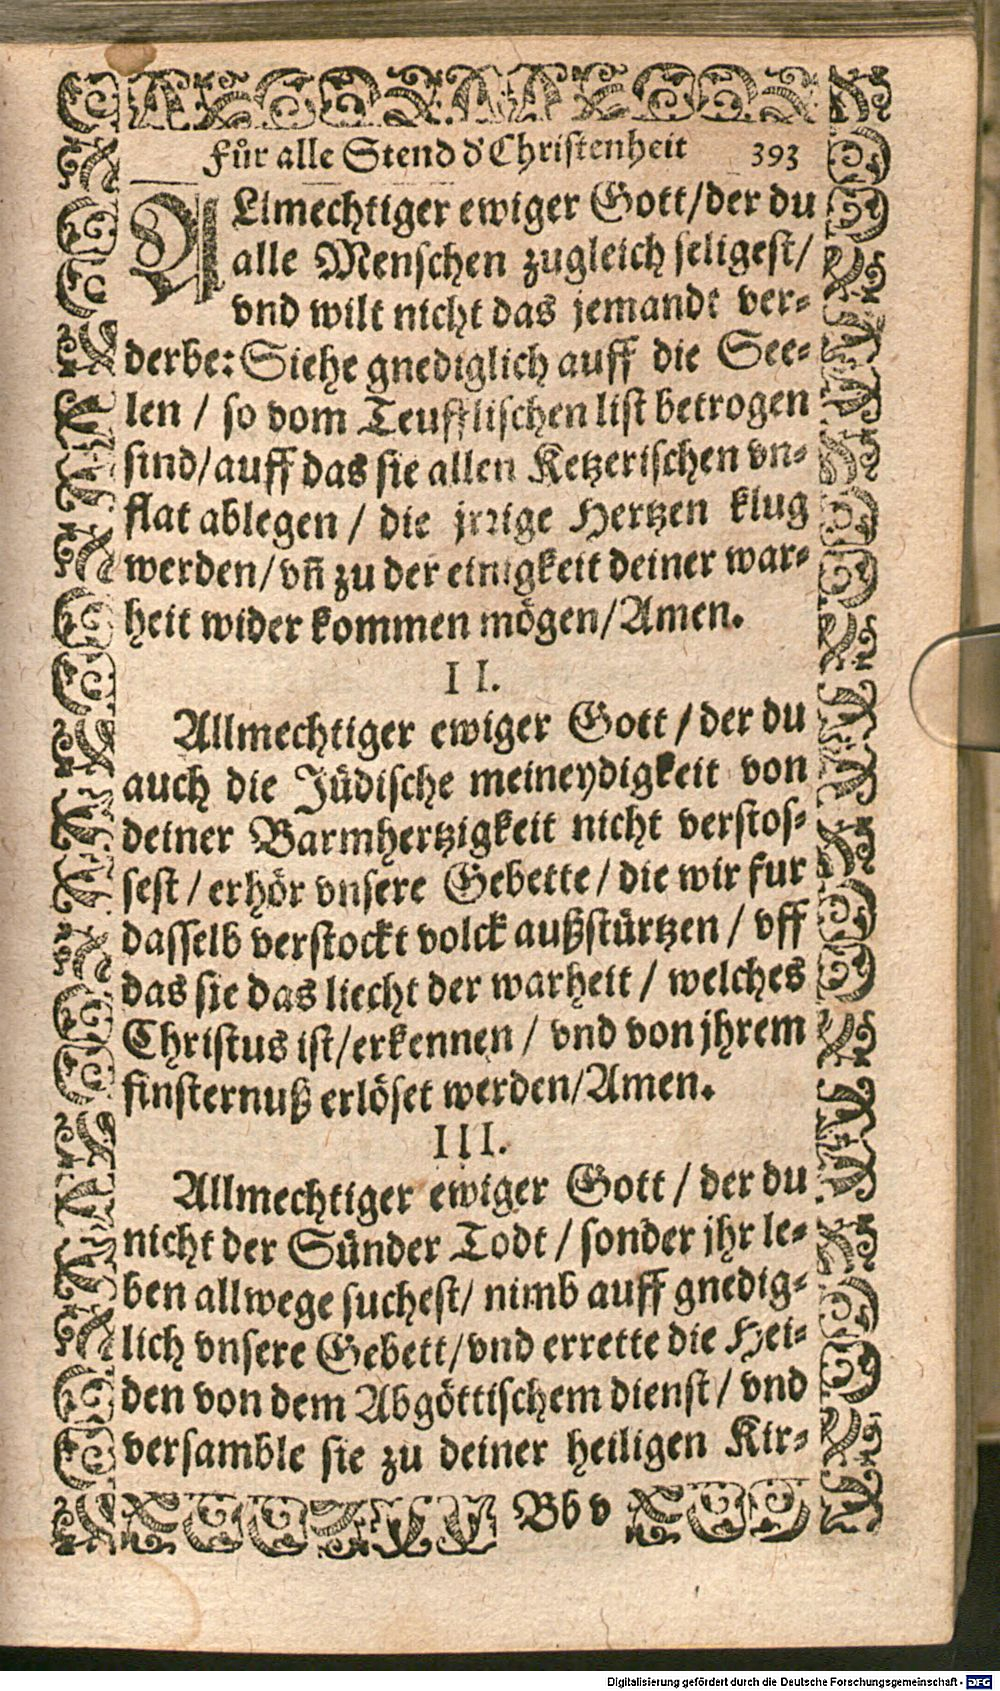 Fůr alle Stend d' Christenheit 393
ALlmechtiger ewiger Gott/der du
alle Menschen zugleich seligest/
vnd wilt nicht das jemandt ver-
derbe: Siehe gnediglich auff die See-
len / so vom Teufflischen list betrogen
sind/auff das sie allen Ketzerischen vn-
flat ablegen / die jrrige Hertzen klug
werden/vñ zu der einigkeit deiner war-
heit wider kommen mögen/Amen.
II.
Allmechtiger ewiger Gott / der du
auch die Jüdische meineydigkeit von
deiner Barmhertzigkeit nicht verstos-
sest / erhör vnsere Gebette / die wir fur
dasselb verstockt volck außstürtzen / vff
das sie das liecht der warheit / welches
Christus ist/erkennen / vnd von jhrem
finsternuß erlöset werden/Amen.
III.
Allmechtiger ewiger Gott / der du
nicht der Sünder Todt / sonder jhr le-
ben allwege suchest/ nimb auff gnedig-
lich vnsere Gebett/vnd errette die Hei-
den von dem Abgöttischem dienst/ vnd
versamble sie zu deiner heiligen Kir-
Bb v
Digitalisierung gefördert durch die Deutsche Forschungsgemeinschaft - DFG